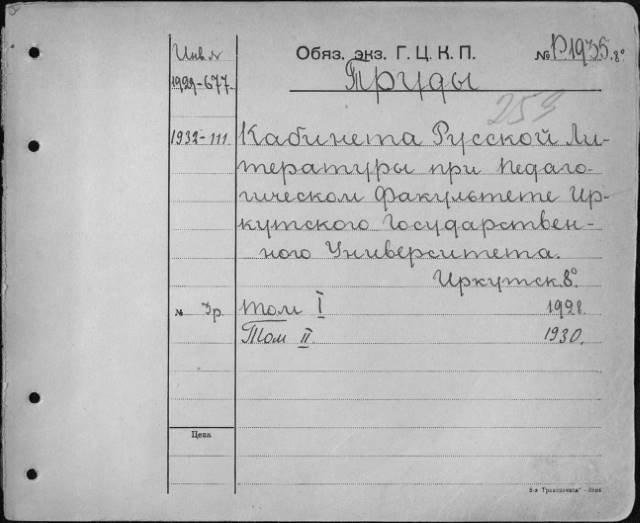 Инв. №
Обяз. экз. Г. Ц. К. П.
№ Р1935. 8°
1929-677.
Труды
259
1932-111
Кабинета Русской Ли-
тературы при Педаго-
гическом Факультете Ир-
кутского Государствен-
ного Университета.
Иркутск. 8°
№ Эр.
Том I
1928.
Том II.
1930.
Цена